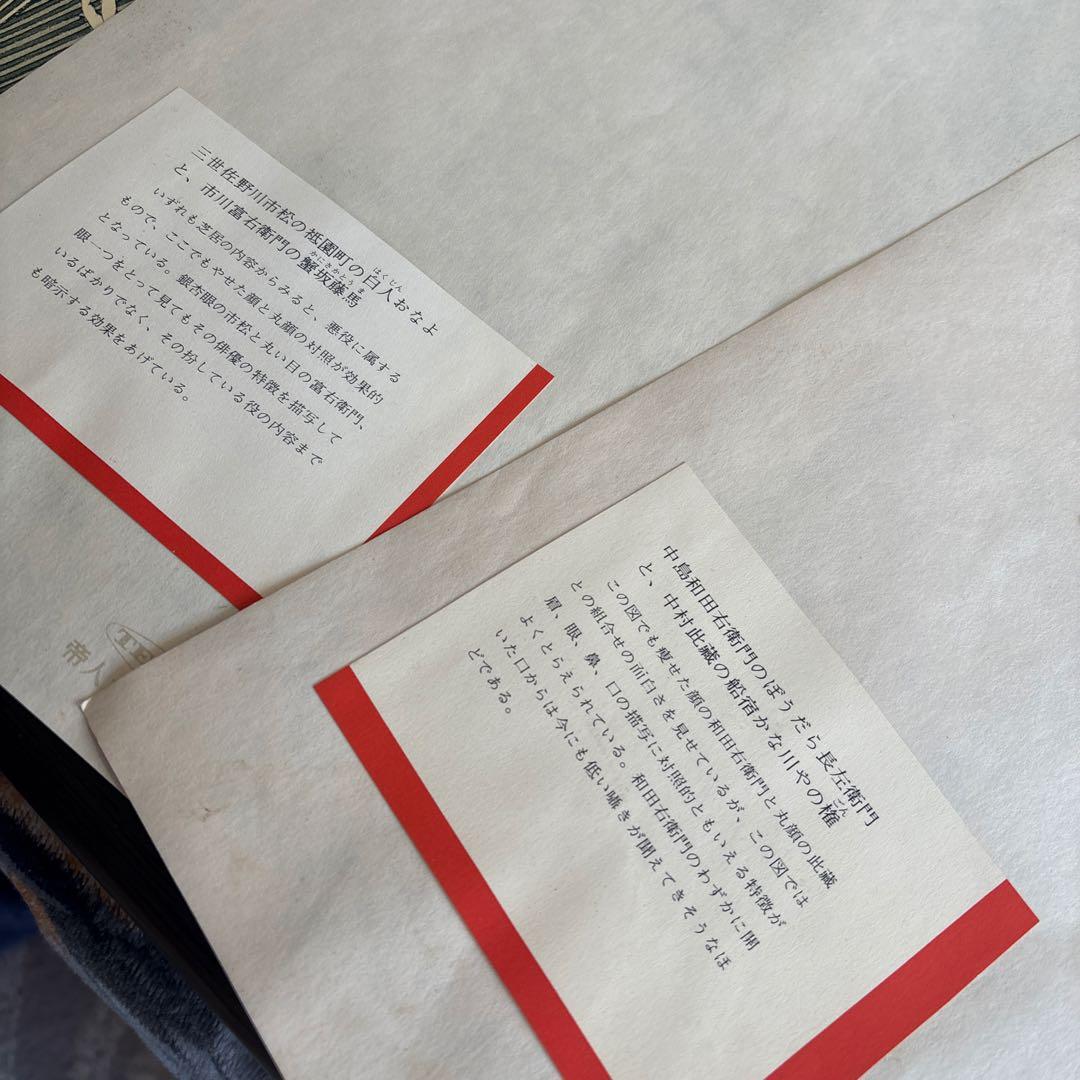 三世佐野川市松の祗園町の白人おなよ
はくじん
と、市川富右衛門の蟹坂藤馬
かにさかとうま
いずれも芝居の内容からみると、悪役に属する
もので、ここでもやせた顔と丸顔の対照が効果的
となっている。銀杏眼の市松と丸い目の富右衛門、
眼一つをとって見てもその俳優の特徴を描写して
いるばかりでなく、その扮している役の内容まで
も暗示する効果をあげている。
帝人
中島和田右衛門のぼうだら長左衛門
と、中村此蔵の船宿かな川やの権
ごん
この図でも痩せた顔の和田右衛門と丸顔の此蔵
との組合せの面白さを見せているが、この図では
眉、眼、鼻、口の描写に対照的ともいえる特徴が
よくとらえられている。和田右衛門のわずかに開
いた口からは今にも低い囁きが聞えてきそうなほ
どである。